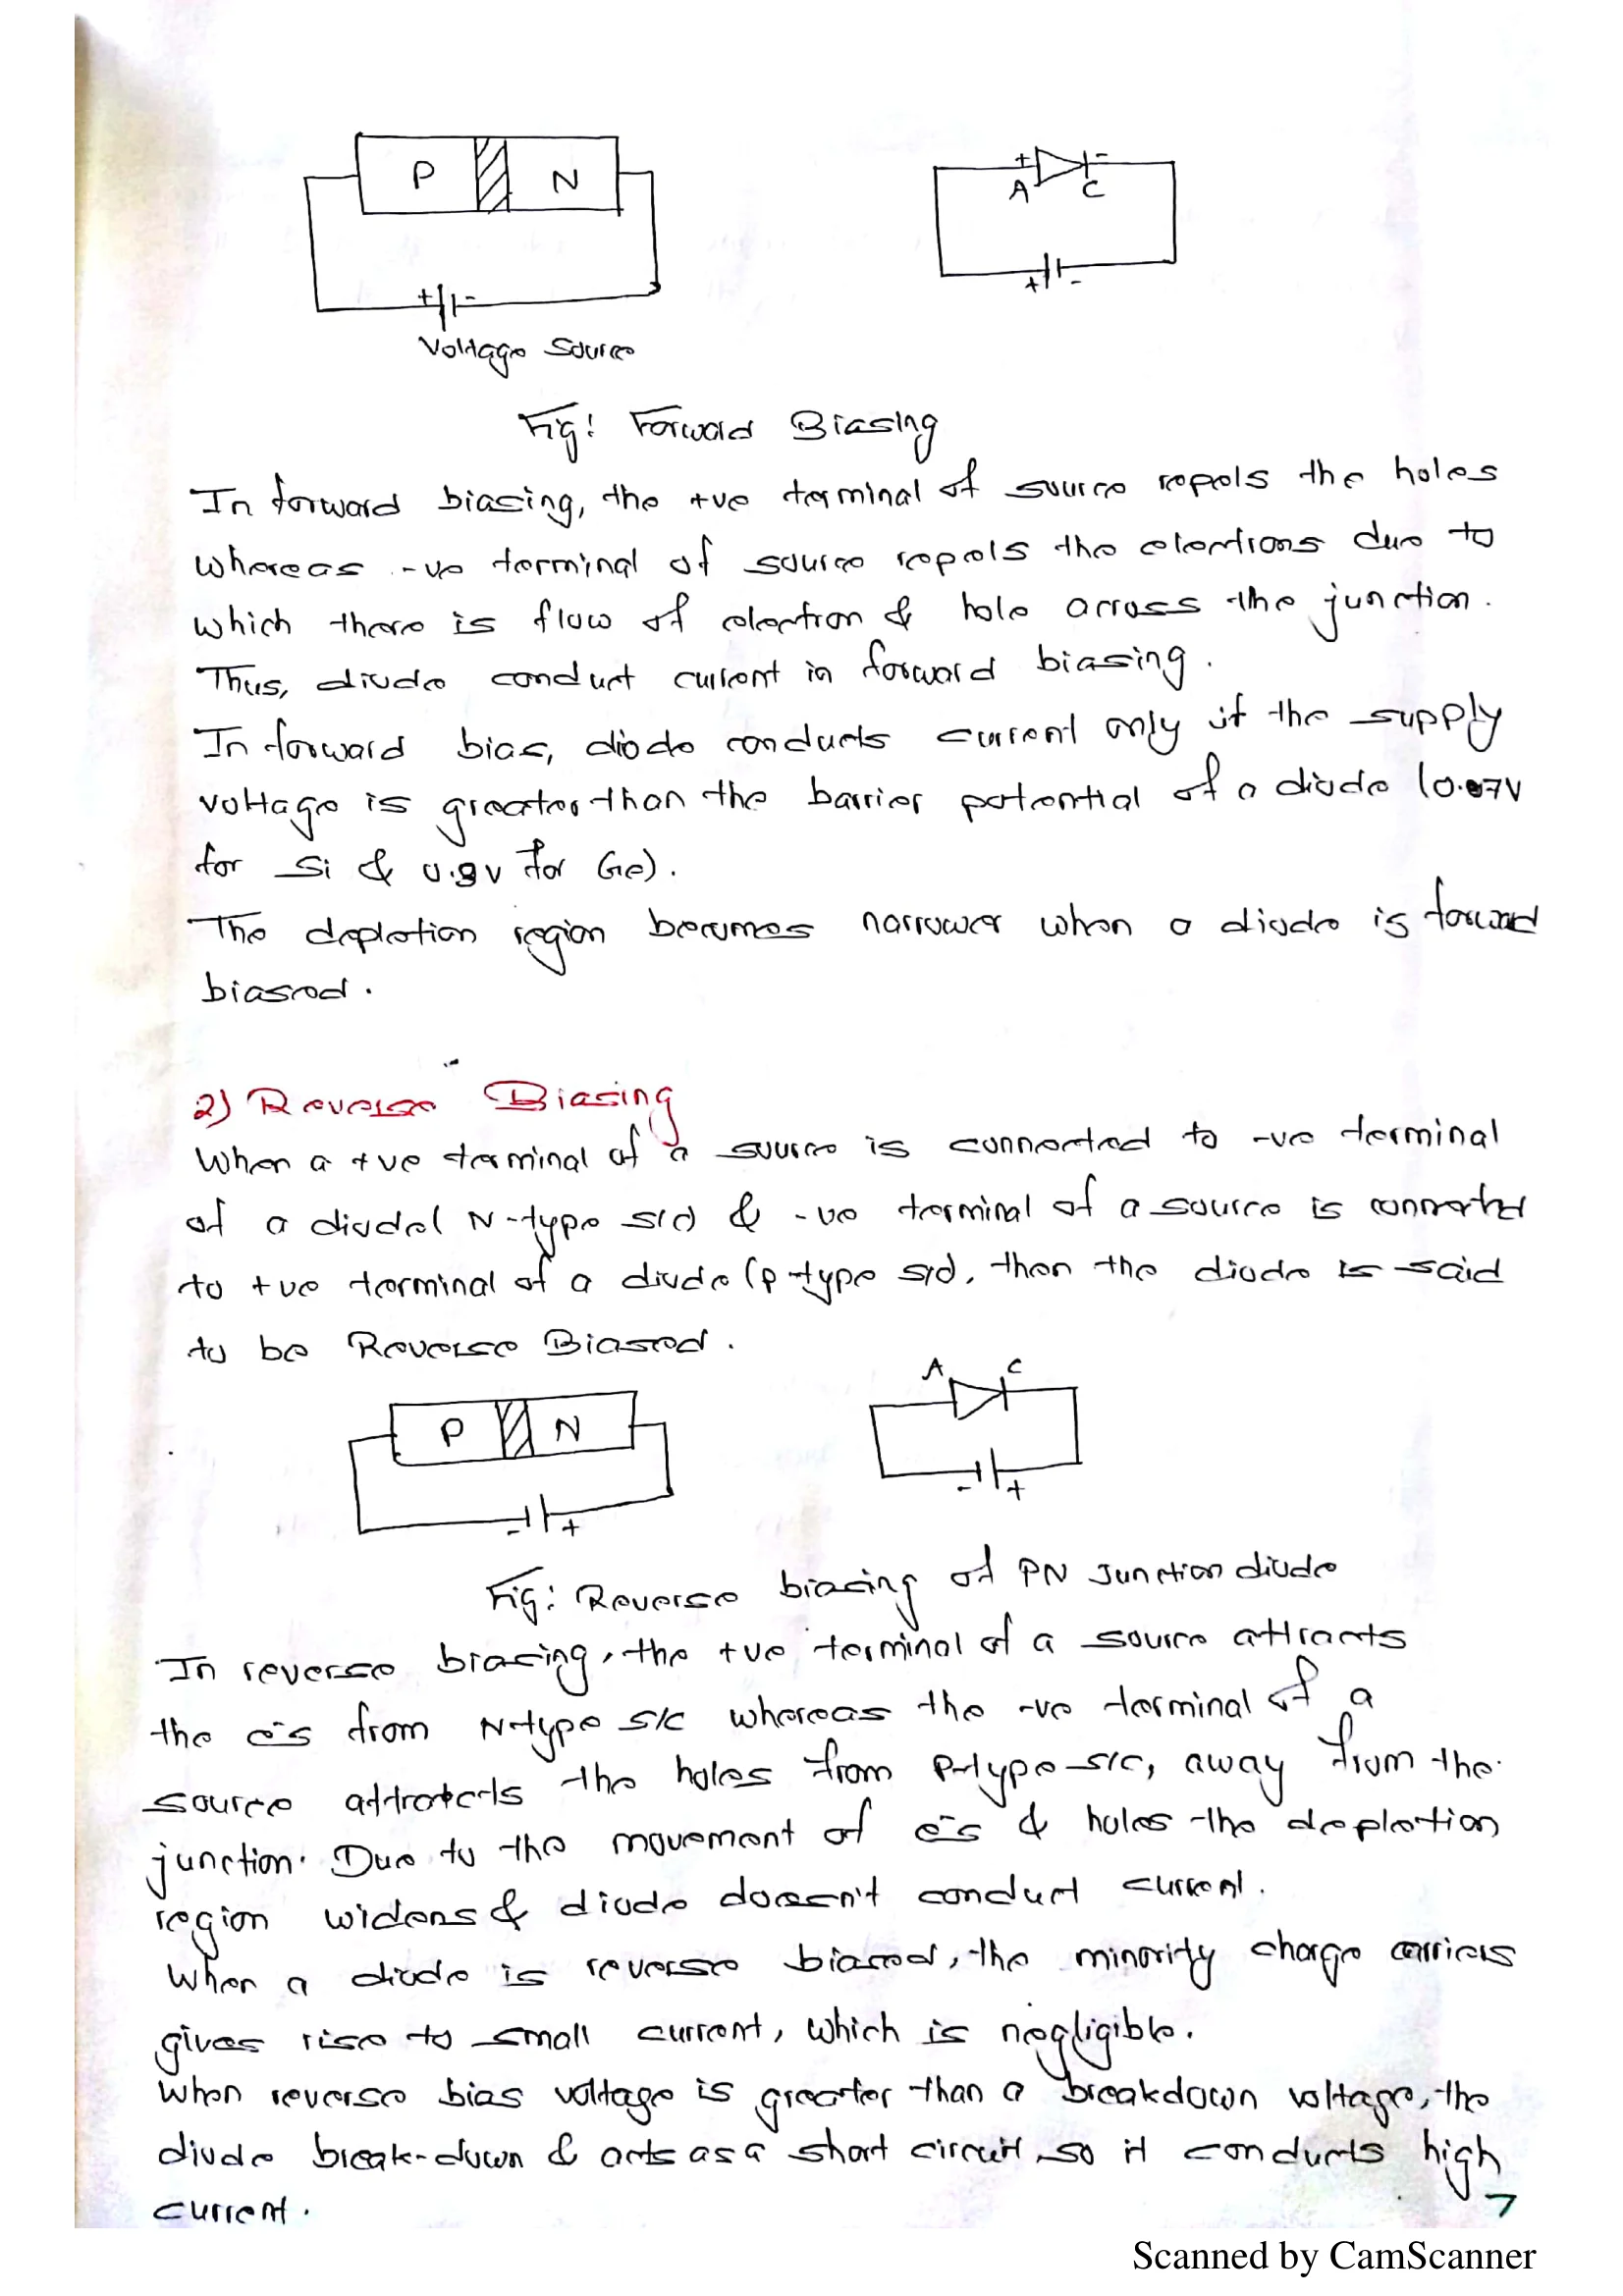 P N
+ -
A C
+ -
+ -
Voltage Source
Fig: Forward Biasing
In forward biasing, the +ve terminal of source repels the holes
whereas -ve terminal of source repels the electrons due to
which there is flow of electron & hole across the junction.
Thus, diode conduct current in forward biasing.
In forward bias, diode conducts current only if the supply
voltage is greater than the barrier potential of a diode (0.07V
for Si & 0.3V for Ge).
The depletion region becomes narrower when a diode is forward
biased.
2) Reverse Biasing
When a +ve terminal of a source is connected to -ve terminal
of a diode( N-type s/c) & -ve terminal of a source is connected
to +ve terminal of a diode (p-type s/c), then the diode is said
to be Reverse Biased.
A C
P N
- +
- +
Fig: Reverse biasing of PN Junction diode
In reverse biasing, the +ve terminal of a source attracts
the e⁻s from N-type s/c whereas the -ve terminal of a
source attracts the holes from P-type s/c, away from the
junction. Due to the movement of e⁻s & holes the depletion
region widens & diode doesn't conduct current.
When a diode is reverse biased, the minority charge carriers
gives rise to small current, which is negligible.
When reverse bias voltage is greater than a breakdown voltage, the
diode break-down & acts as a short circuit, so it conducts high
current.
7
Scanned by CamScanner